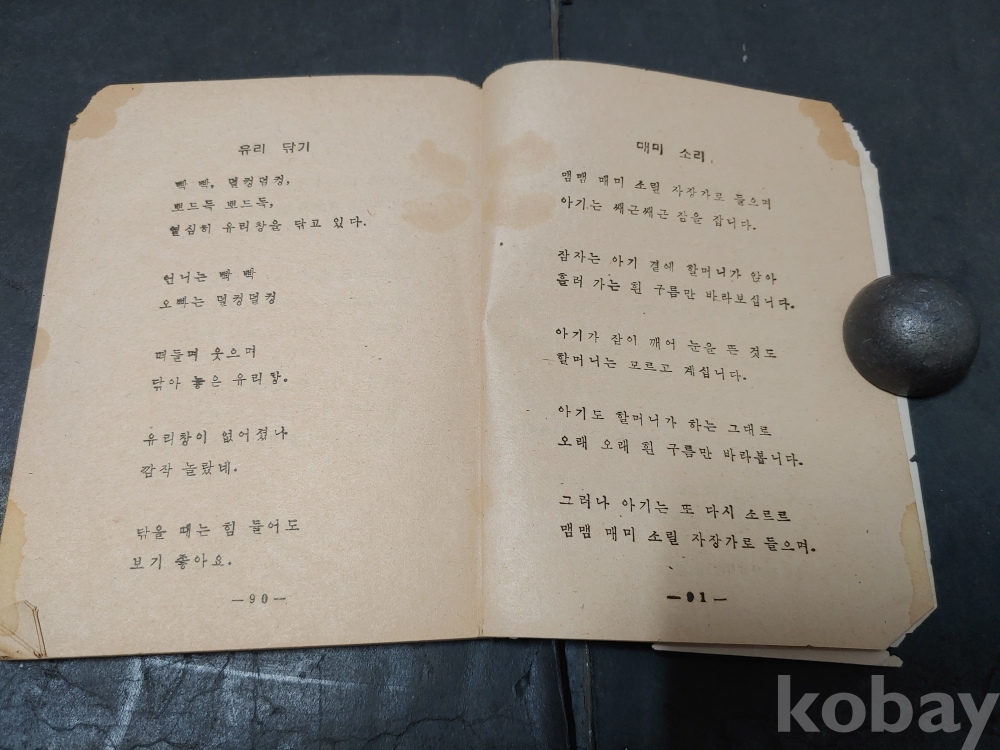 유리 닦기
빡 빡, 덜컹덜컹,
뽀드득 뽀드득,
열심히 유리창을 닦고 있다.
언니는 빡 빡
오빠는 덜컹덜컹
떠들며 웃으며
닦아 놓은 유리창.
유리창이 없어졌나
깜작 놀랐네.
닦을 때는 힘 들어도
보기 좋아요.
—90—
매미 소리
맴맴 매미 소릴 자장가로 들으며
아기는 쌔근쌔근 잠을 잡니다.
잠자는 아기 곁에 할머니가 앉아
흘러 가는 흰 구름만 바라보십니다.
아기가 잠이 깨어 눈을 뜬 것도
할머니는 모르고 계십니다.
아기도 할머니가 하는 그대르
오래 오래 흰 구름만 바라봅니다.
그러나 아기는 또 다시 소르르
맴맴 매미 소릴 자장가로 들으며.
—91—
kobay